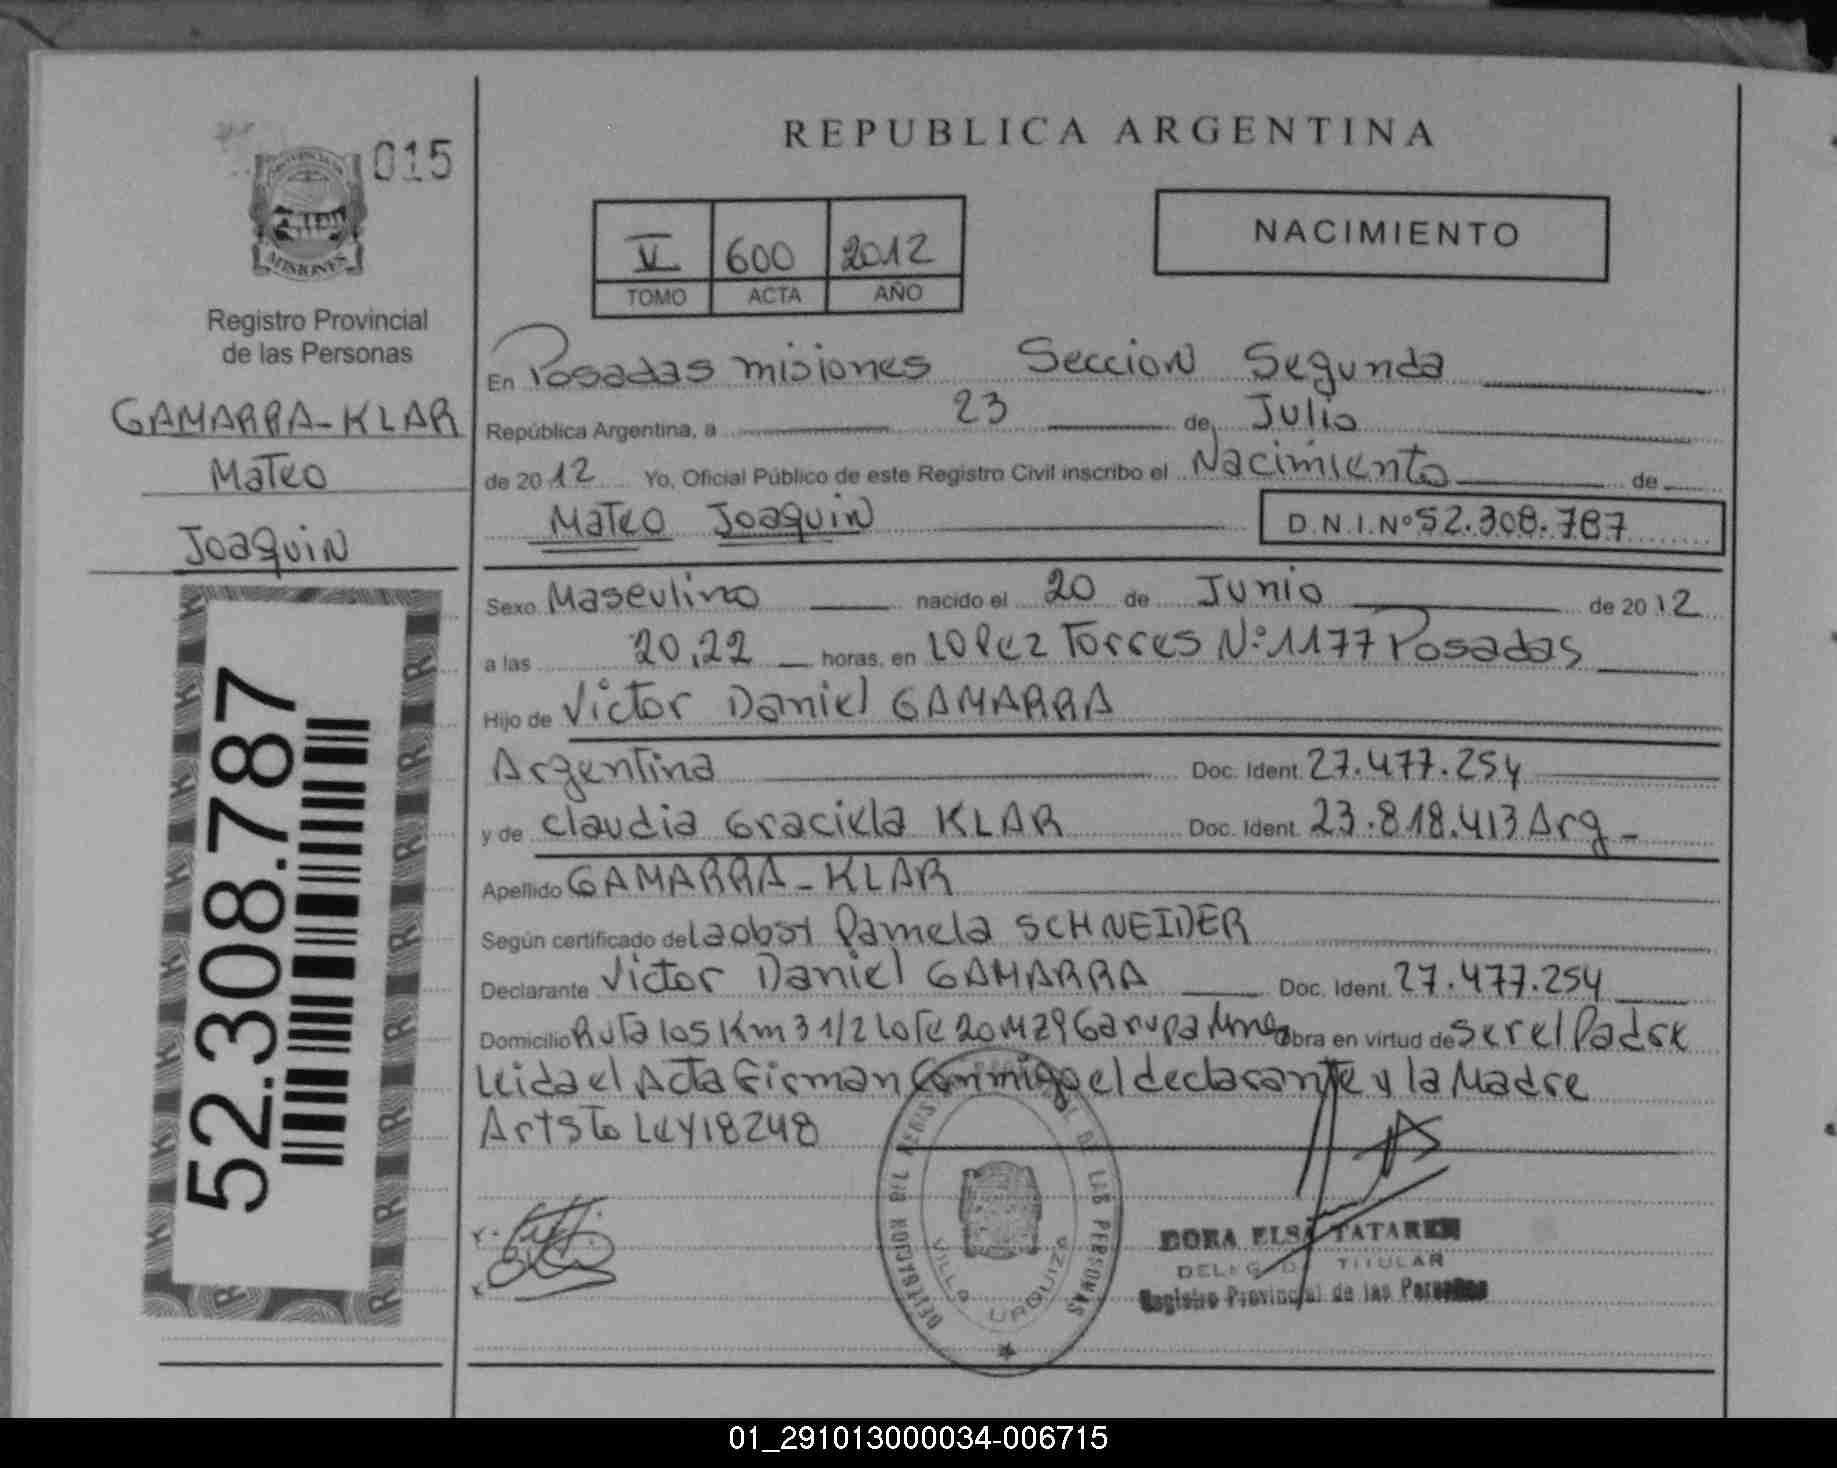 015
PROVINCIA DE
MISIONES
Registro Provincial
de las Personas
GAMARRA-KLAR
Mateo
Joaquin
52.308.787
REPUBLICA ARGENTINA
V 600 2012
TOMO ACTA AÑO
NACIMIENTO
En Posadas misiones Seccion Segunda
República Argentina, a 23 de Julio
de 2012 Yo, Oficial Público de este Registro Civil inscribo el Nacimiento de
Mateo Joaquin D.N.I.Nº 52.308.787
Sexo Masculino nacido el 20 de Junio de 2012
a las 20,22 horas, en LOPez Torres Nº 1177 Posadas
Hijo de Victor Daniel GAMARRA
Argentina Doc. Ident. 27.477.254
y de claudia Graciela KLAR Doc. Ident. 23.818.413 Arg -
Apellido GAMARRA - KLAR
Según certificado de La obst Pamela SCHNEIDER
Declarante Victor Daniel GAMARRA Doc. Ident. 27.477.254
Domicilio Ruta 105 Km 3 1/2 Lote 20 MZ9 Garupa Mnes obra en virtud de ser el Padre
leida el Acta Firman Conmigo el declarante y la Madre
Art 5to Ley 18248
DELEGACION
DE LAS PERSONAS
VILLA URQUIZA
DORA ELSA TATAREN
DELEGADA TITULAR
Registro Provincial de las Personas
01_291013000034-006715